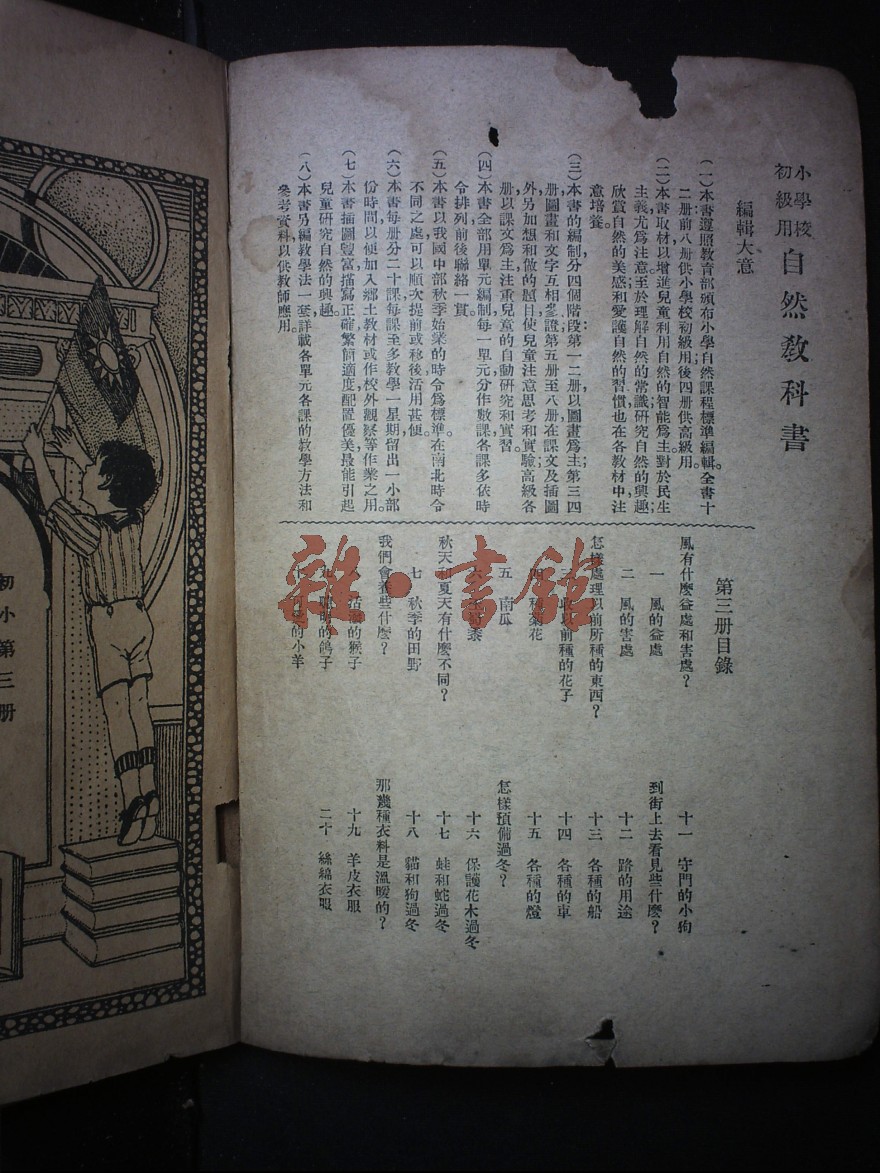 小學校
初級用
自然教科書
編輯大意
(一)本書遵照教育部頒布小學自然課程標準編輯。全書十
二册前八册供小學校初級用後四册供高級用。
(二)本書取材以增進兒童利用自然的智能爲主對於民生
主義尤爲注意至於理解自然的常識研究自然的興趣
欣賞自然的美感和愛護自然的習慣也在各教材中注
意培養。
(三)本書的編制分四個階段第一二册以圖畫爲主第三四
册圖畫和文字互相參證第五册至八册在課文及插圖
外另加想和做的題目使兒童注意思考和實驗高級各
册以課文爲主注重兒童的自動研究和實習。
(四)本書全部用單元編制每一單元分作數課各課多依時
令排列前後聯絡一貫。
(五)本書以我國中部秋季始業的時令爲標準在南北時令
不同之處可以順次提前或移後活用甚便。
(六)本書每册分二十課每課至多教學一星期留出一小部
份時間以便加入鄉土教材或作校外觀察等作業之用。
(七)本書插圖豐富描寫正確繁簡適度配置優美最能引起
兒童研究自然的興趣。
(八)本書另編教學法一套詳載各單元各課的教學方法和
參考資料以供教師應用。
第三册目錄
風有什麼益處和害處?
一 風的益處
二 風的害處
怎樣處理以前所種的東西?
三 收以前種的花子
四 菊花
五 南瓜
秋天和夏天有什麼不同?
七 秋季的田野
我們會養些什麼?
活潑的猴子
的鴿子
的小羊
十一 守門的小狗
到街上去看見些什麼?
十二 路的用途
十三 各種的船
十四 各種的車
十五 各種的燈
怎樣預備過冬?
十六 保護花木過冬
十七 蛙和蛇過冬
十八 貓和狗過冬
那幾種衣料是溫暖的?
十九 羊皮衣服
二十 絲綿衣服
初小第三册
雜·書館